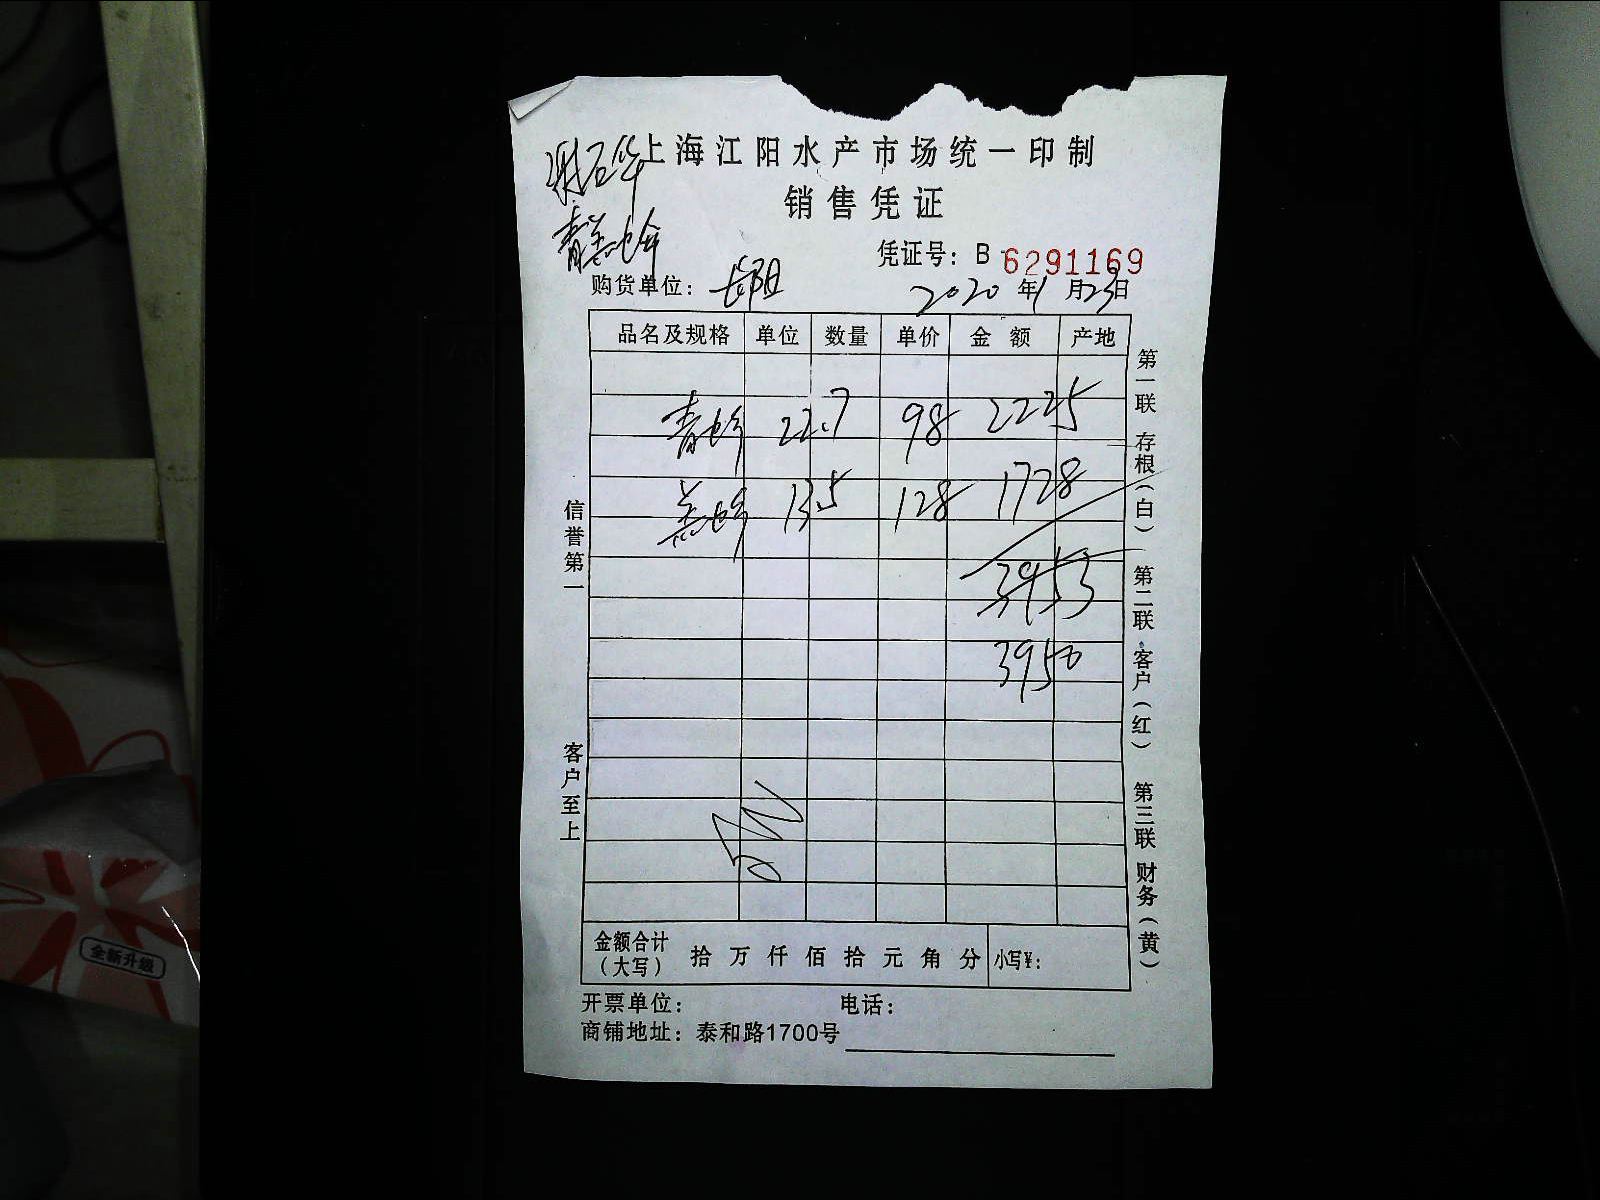 上海江阳水产市场统一印制
销售凭证
凭证号：B 6291169
购货单位：长阳 2020年1月23日
品名及规格 单位 数量 单价 金额 产地
青 22.7 98 2225
13.5 128 1728
3953
3950
信誉第一
客户至上
第一联 存根（白） 第二联 客户（红） 第三联 财务（黄）
金额合计（大写） 拾 万 仟 佰 拾 元 角 分 小写¥：
开票单位： 电话：
商铺地址：泰和路1700号
全新升级